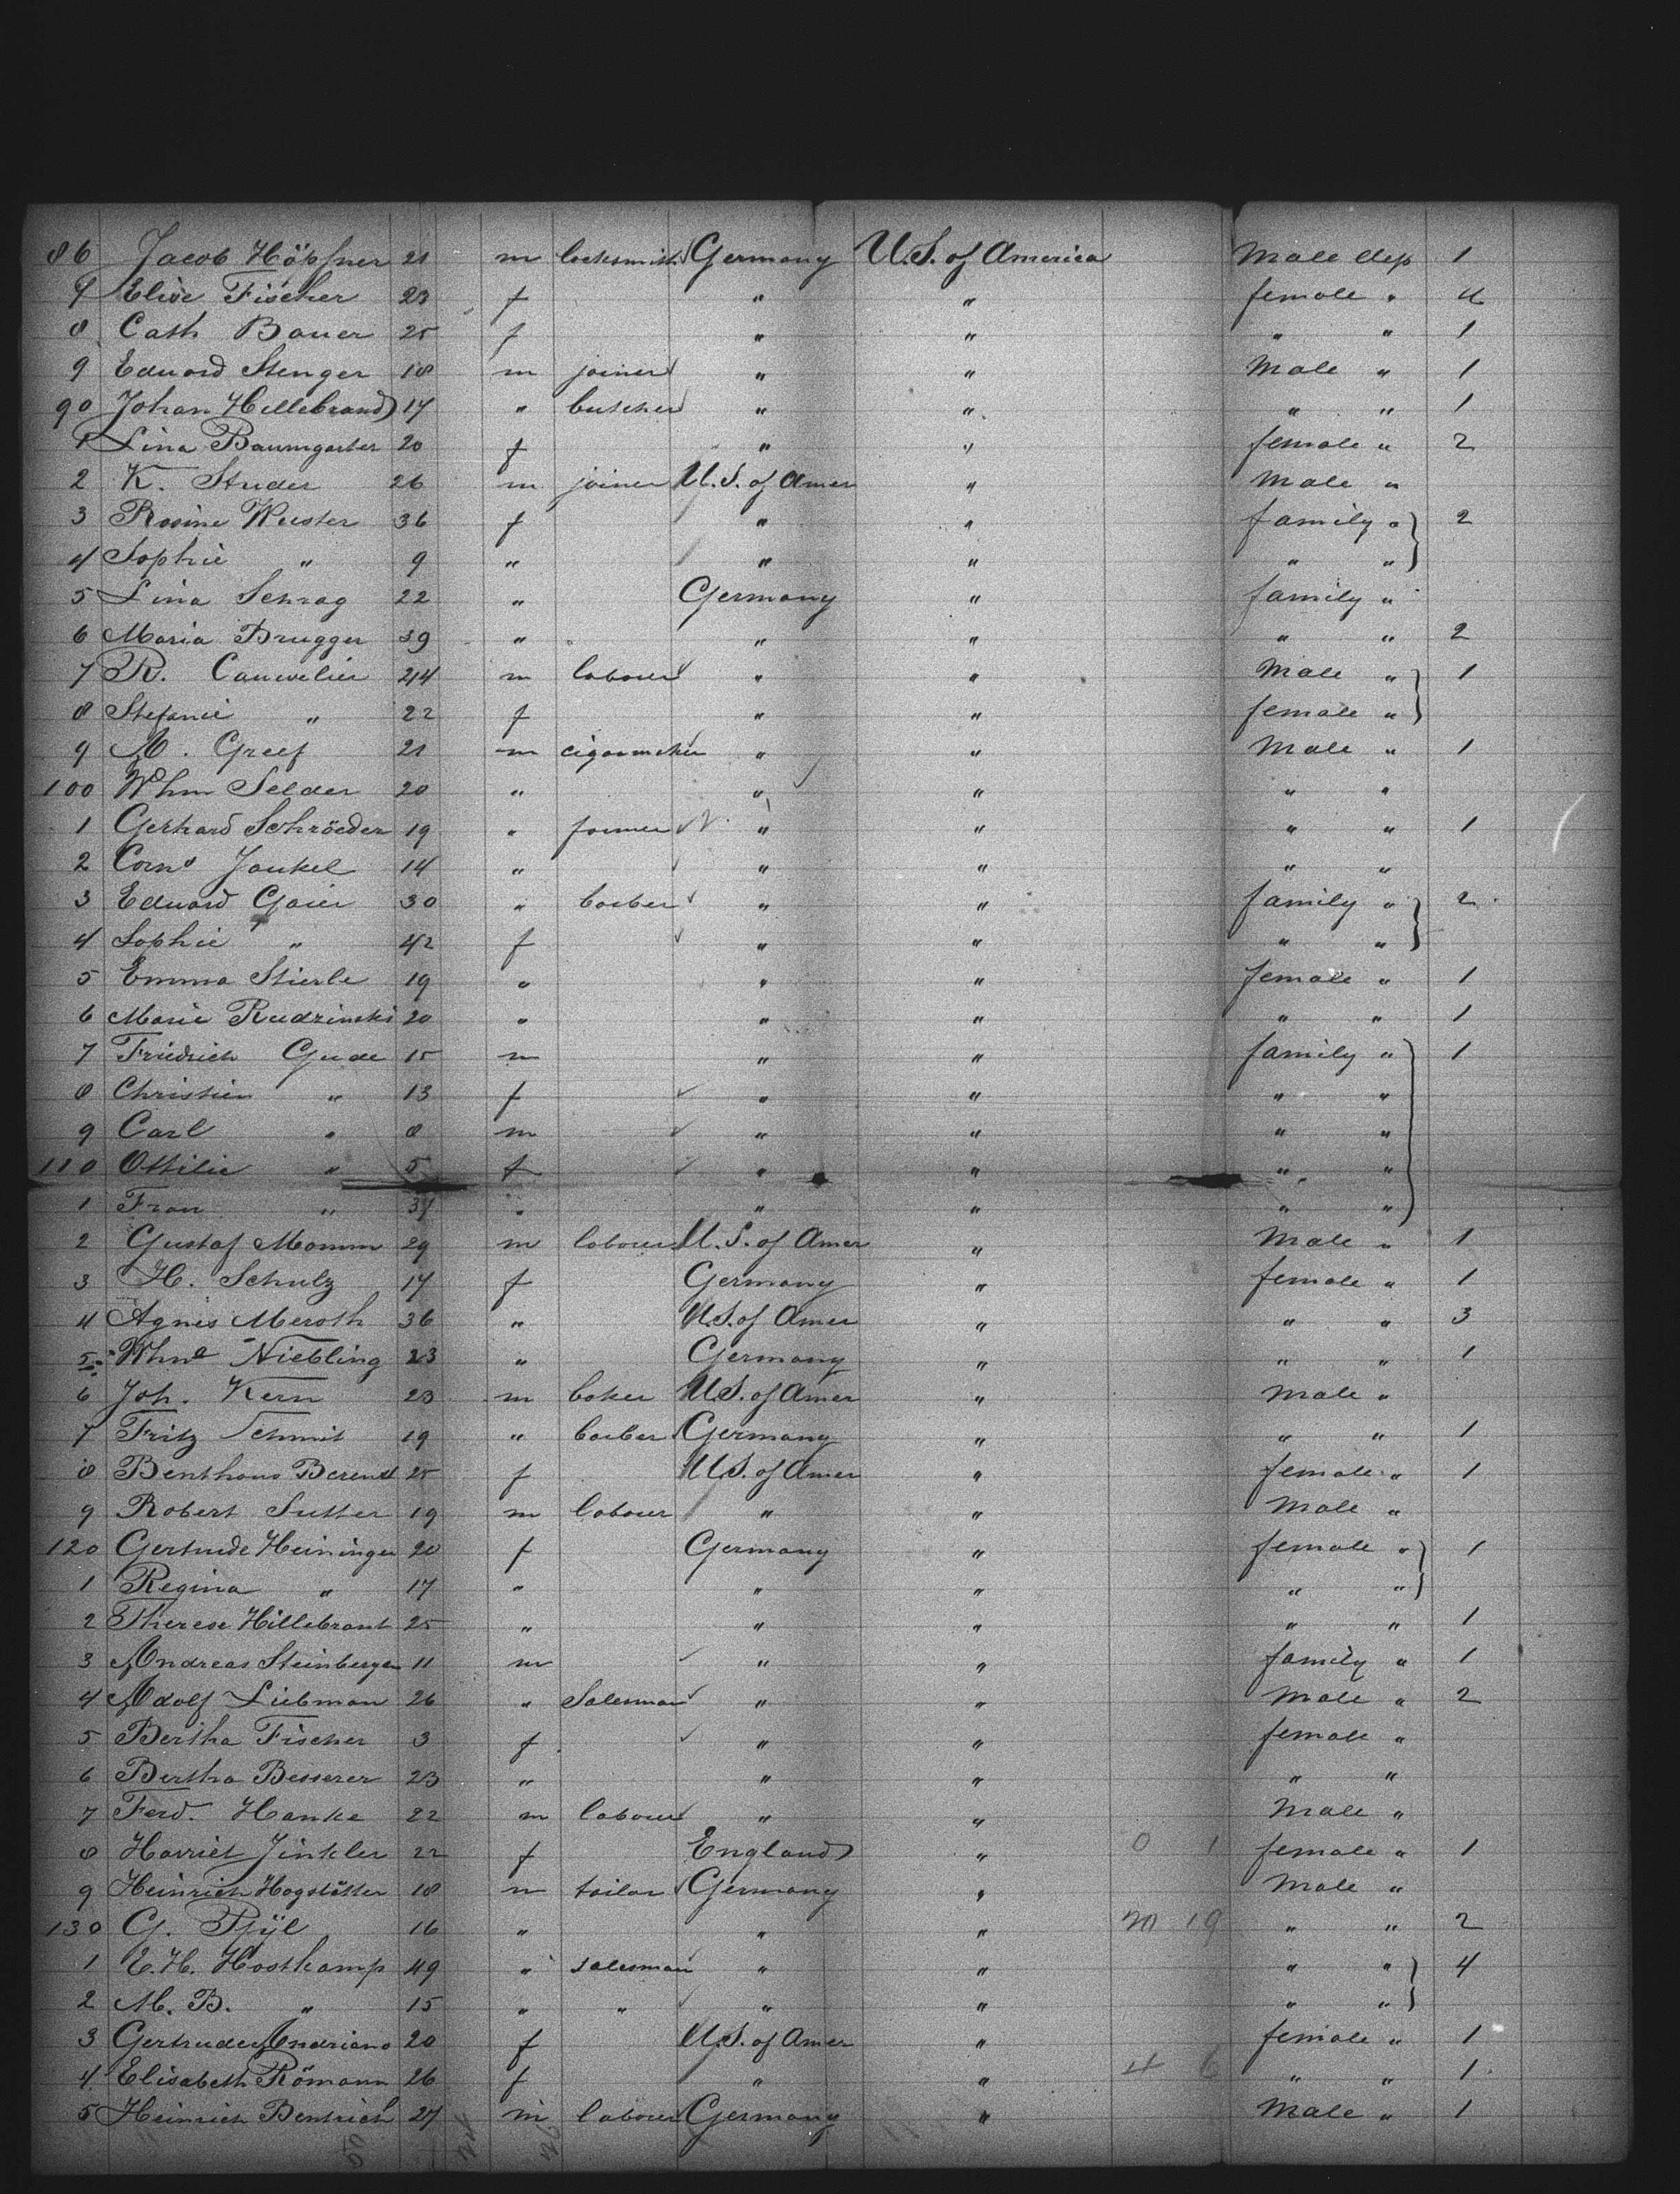 86 Jacob Höpfner 21 m locksmith Germany U.S. of America Male dep 1
7 Elise Fischer 23 f " " female " 4
8 Cath Bauer 25 f " " " " 1
9 Eduard Stenger 18 m joiner " " Male " 1
90 Johan Hillebrand 17 " butcher " " " " 1
1 Lina Baumgarter 20 f " " female " 2
2 K. Studer 26 m joiner U.S. of Amer " Male "
3 Rosine Wuster 36 f " " family " 2
4 Sophie " 9 " " " " "
5 Lina Schrag 22 " Germany " family "
6 Maria Brugger 39 " " " " " 2
7 R. Cauwelier 24 m labour " " Male " 1
8 Stefanie " 22 f " " female "
9 M. Greef 21 m cigarmaker " " Male " 1
100 Whm Selder 20 " " " " "
1 Gerhard Schröeder 19 " farmer " " " " 1
2 Corns Jankel 14 " " " " "
3 Eduard Gaier 30 " barber " " family " 2
4 Sophie " 42 f " " " "
5 Emma Stierle 19 " " " female " 1
6 Marie Rudzinski 20 " " " " " 1
7 Friedrich Gude 15 m " " family " 1
8 Christien " 13 f " " " "
9 Carl " 8 m " " " "
110 Ottilie " 5 f " " " "
1 Frau " 37 " " " " "
2 Gustaf Momm 29 m labour U.S. of Amer " Male " 1
3 H. Schulz 17 f Germany " female " 1
4 Agnes Meroth 36 " U.S. of Amer " " " 3
5 Whne Niebling 23 " Germany " " " 1
6 Joh. Kern 23 m baker U.S. of Amer " Male "
7 Fritz Schmit 19 " barber Germany " " " 1
8 Berend 25 f U.S. of Amer " female " 1
9 Robert Sutter 19 m labour " " Male "
120 Gertrude Heininger 20 f Germany " female " 1
1 Regina " 17 " " " " "
2 Therese Hillebrant 25 " " " " " 1
3 Andreas Steinberger 11 m " " family " 1
4 Adolf Liebman 26 " Salesman " " Male " 2
5 Bertha Fischer 3 f " " female "
6 Bertha Besserer 23 " " " " "
7 Ferd. Hanke 22 m labour " " Male "
8 Harriet Jinkler 22 f England " 0 1 female " 1
9 Heinrich Hogstätter 18 m tailor Germany " Male "
130 G. Pfÿl 16 " " " 20 19 " " 2
1 E.H. Hostkamp 49 " salesman " " " " 4
2 M. B. " 15 " " " " " "
3 Gertrude Andriano 20 f U.S. of Amer " female " 1
4 Elisabeth Römann 26 f " " 4 6 " " 1
5 Heinrich Bentrich 27 m labour Germany " Male " 1